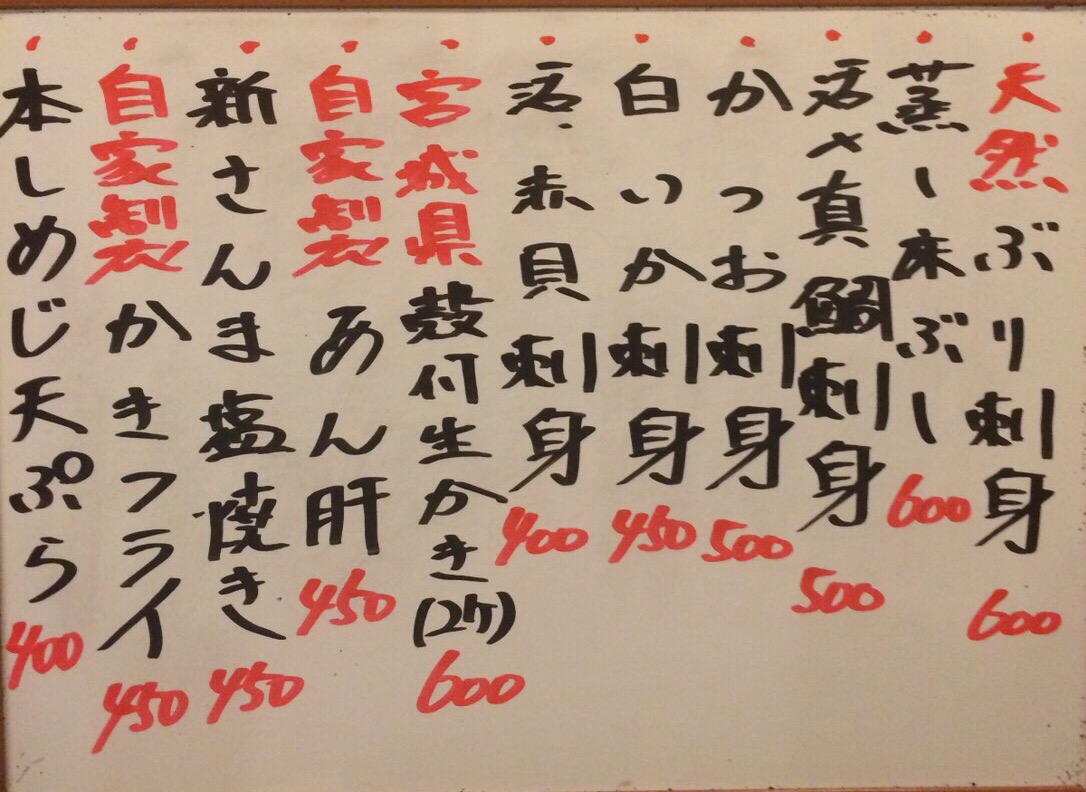 ・天然ぶり刺身 600
・蒸し床ぶし 600
・活〆真鯛刺身 500
・かつお刺身 500
・白いか刺身 450
・活・赤貝刺身 400
・宮城県殻付生かき(2ケ) 600
・自家製あん肝 450
・新さんま塩焼き 450
・自家製かきフライ 450
・本しめじ天ぷら 400